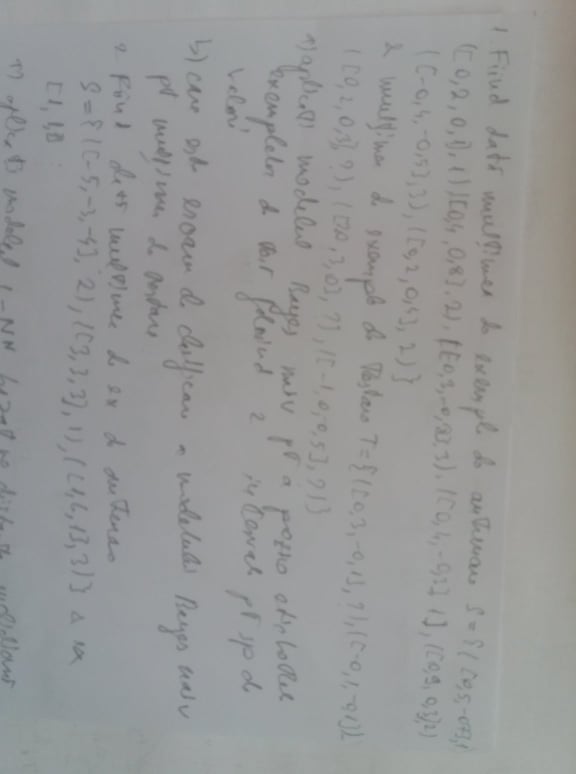 1. Fiind dată mulțimea de exemple de antrenare S={([0,5,-0,7],1)
([0,2,0,1],1)([0,4,0,8],2), ([0,3,-0,8],3), ([0,4,-0,2] 1], ([0,9,0,3],2)
([-0,4,-0,5],3), ([0,2,0,4], 2)}
& mulțimea de exemple de testare T={([0,3,-0,1], ?),([-0,1,-0,1]
([0,2,0,3],?), ( 0,3,0], ?], ([-1,0,-0,5],?)}
a) aplicați modelul Bayes naiv pt a etichetele
exemplelor de test folosind 2 intervale pt sp de
valori
b) care este eroarea de clasificare a modelului Bayes naiv
pt mulțimea de testare
2. Fiind dată mulțimea de ex de antrenare
S={([-5,-3,-4], 2), ([3,3,3],1), ([1,6,1],3)}
[1,1,1]
a) aplicați modelul 1-NN bazat pe distanța